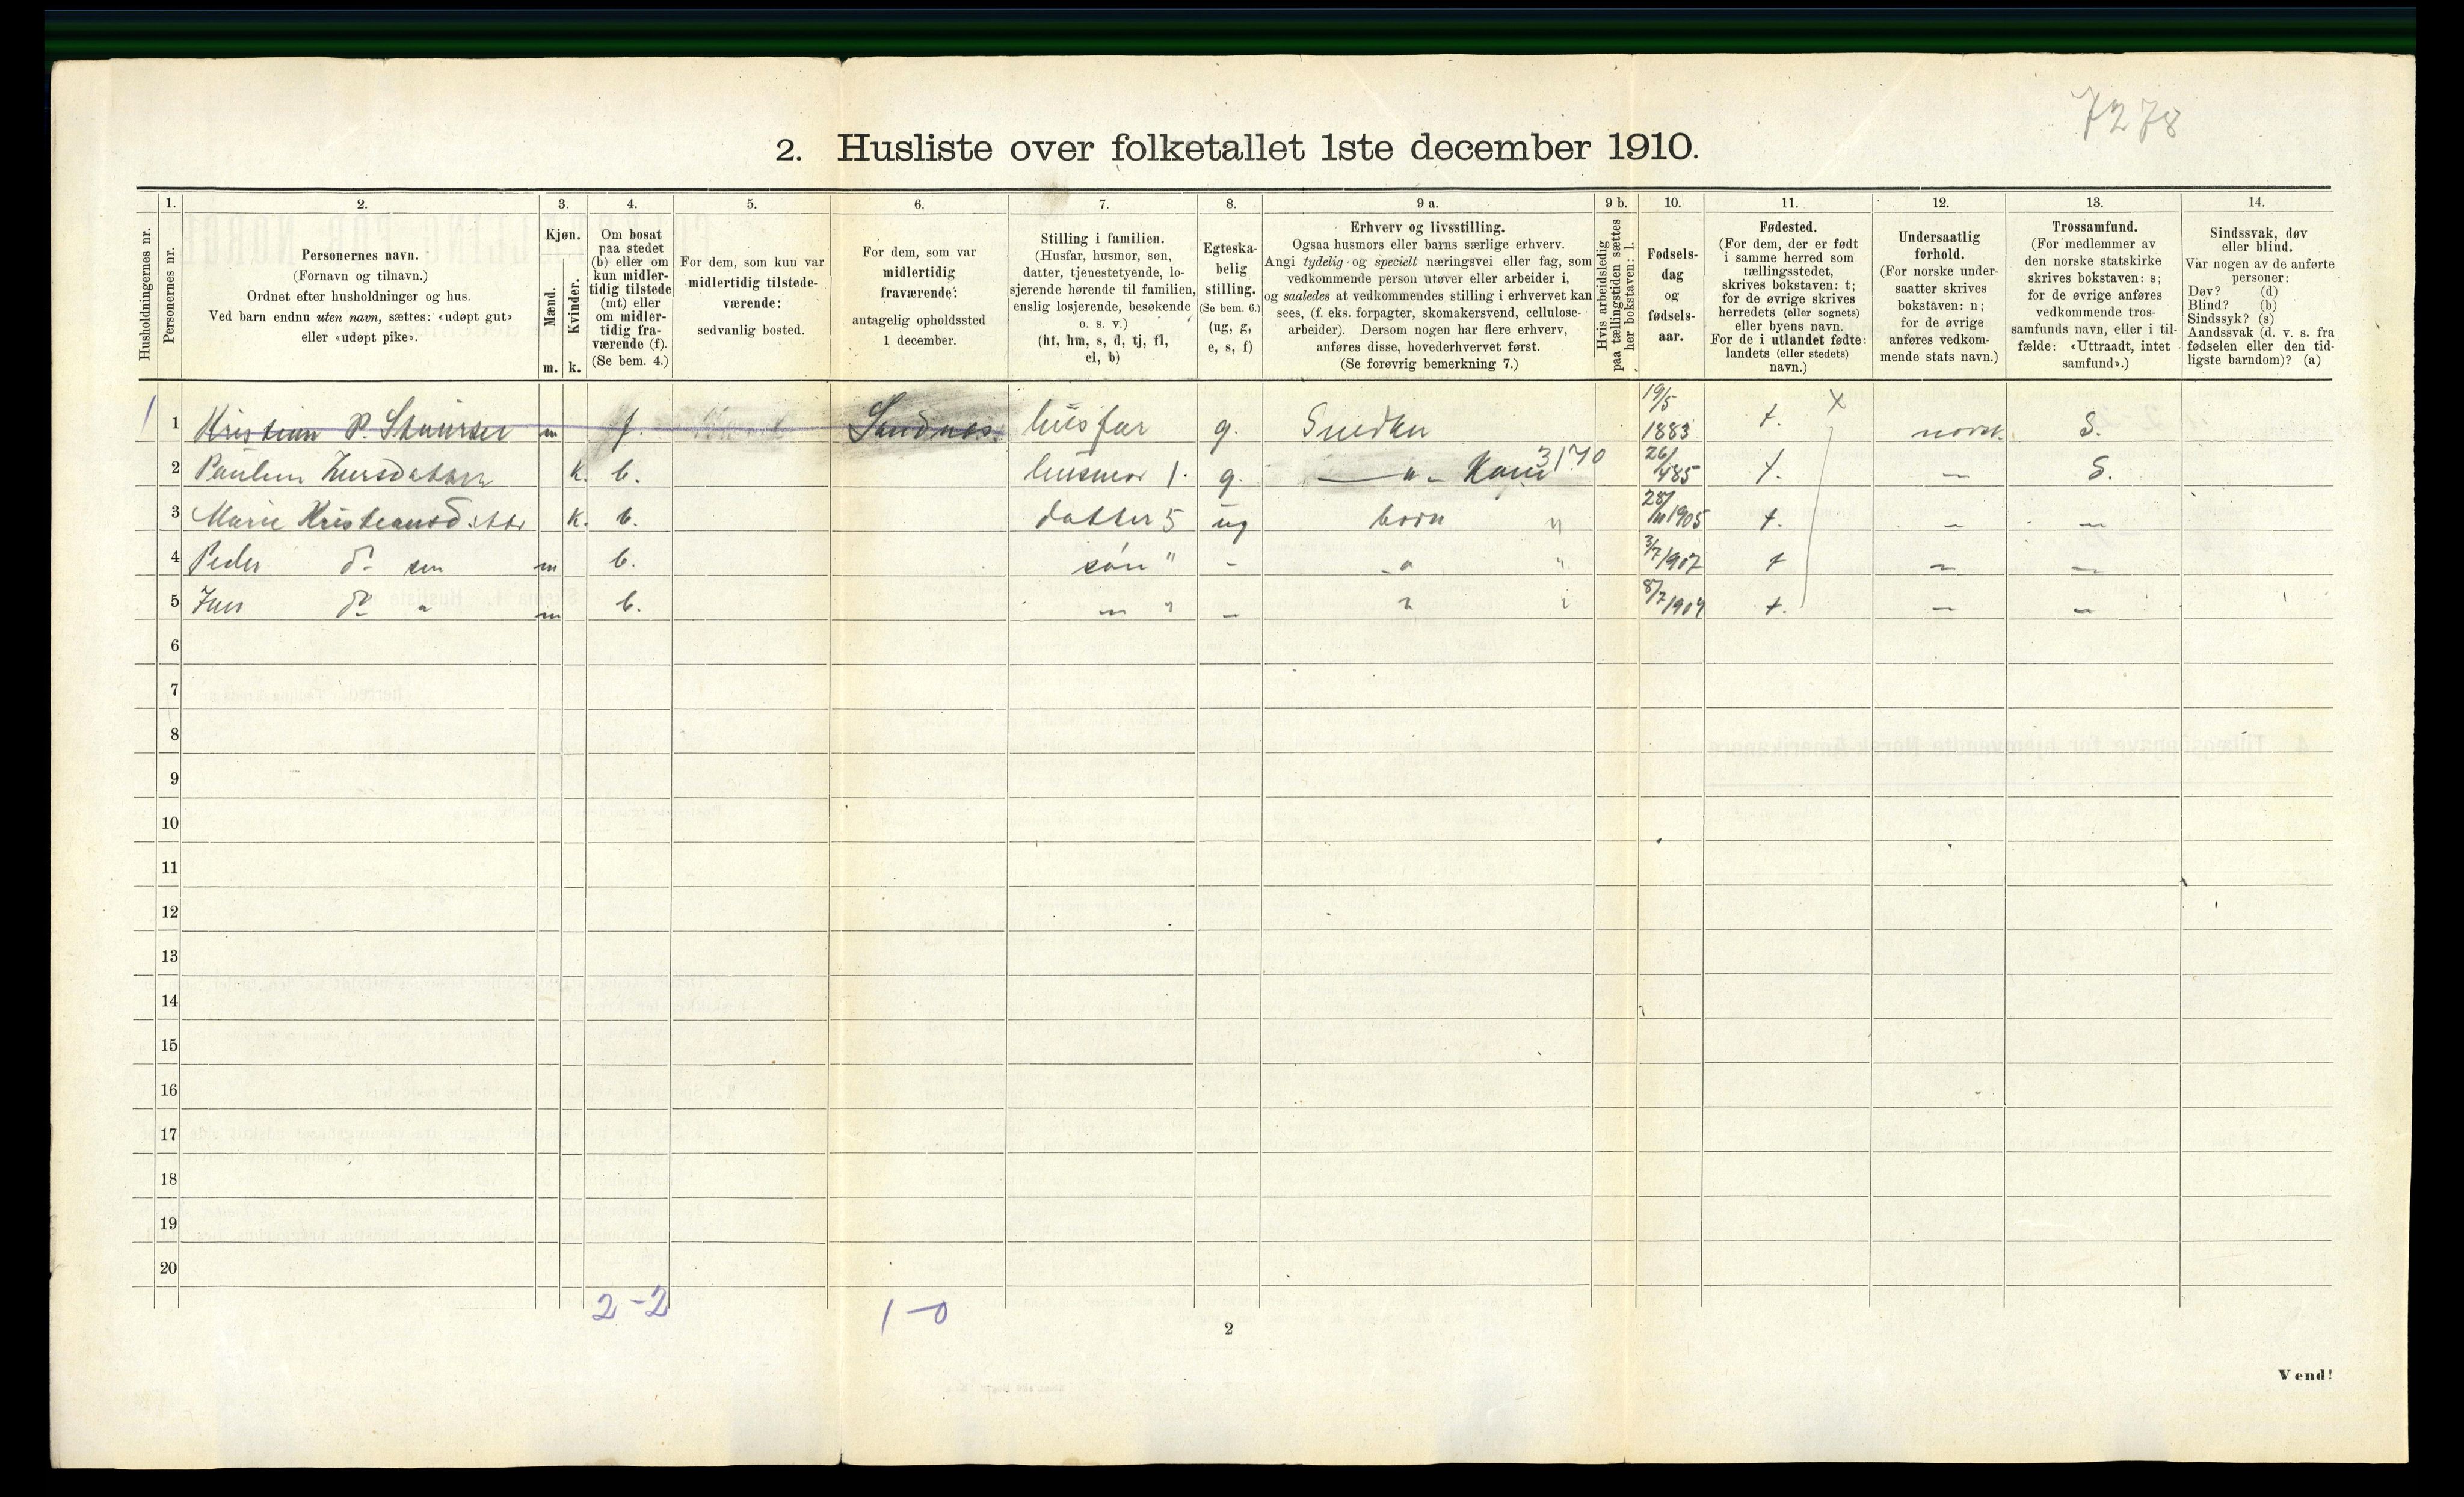 7278
2. Husliste over folketallet 1ste december 1910.
Husholdningernes nr.
1. Personernes nr.
2. Personernes navn.
(Fornavn og tilnavn.)
Ordnet efter husholdninger og hus.
Ved barn endnu uten navn, sættes: «udøpt gut»
eller «udøpt pike».
3. Kjøn.
Mænd. Kvinder.
m. k.
4. Om bosat
paa stedet
(b) eller om
kun midler-
tidig tilstede
(mt) eller
om midler-
tidig fra-
værende (f).
(Se bem. 4.)
5. For dem, som kun var
midlertidig tilstede-
værende:
sedvanlig bosted.
6. For dem, som var
midlertidig
fraværende:
antagelig opholdssted
1 december.
7. Stilling i familien.
(Husfar, husmor, søn,
datter, tjenestetyende, lo-
sjerende hørende til familien,
enslig losjerende, besøkende
o. s. v.)
(hf, hm, s, d, tj, fl,
el, b)
8. Egteska-
belig
stilling.
(Se bem. 6.)
(ug, g,
e, s, f)
9 a. Erhverv og livsstilling.
Ogsaa husmors eller barns særlige erhverv.
Angi tydelig og specielt næringsvei eller fag, som
vedkommende person utøver eller arbeider i,
og saaledes at vedkommendes stilling i erhvervet kan
sees, (f. eks. forpagter, skomakersvend, cellulose-
arbeider). Dersom nogen har flere erhverv,
anføres disse, hovederhvervet først.
(Se forøvrig bemerkning 7.)
9 b. Hvis arbeidsledig
paa tællingstiden sættes
her bokstaven: l.
10. Fødsels-
dag
og
fødsels-
aar.
11. Fødested.
(For dem, der er født
i samme herred som
tællingsstedet,
skrives bokstaven: t;
for de øvrige skrives
herredets (eller sognets)
eller byens navn.
For de i utlandet fødte:
landets (eller stedets)
navn.)
12. Undersaatlig
forhold.
(For norske under-
saatter skrives
bokstaven: n;
for de øvrige
anføres vedkom-
mende stats navn.)
13. Trossamfund.
(For medlemmer av
den norske statskirke
skrives bokstaven: s;
for de øvrige anføres
vedkommende tros-
samfunds navn, eller i til-
fælde: «Uttraadt, intet
samfund».)
14. Sindssvak, døv
eller blind.
Var nogen av de anførte
personer:
Døv? (d)
Blind? (b)
Sindssyk? (s)
Aandssvak (d. v. s. fra
fødselen eller den tid-
ligste barndom)? (a)
1 1 Kristian P. m f. Sandnes husfar g. Snedker 19/5 1883 t. X norsk. S.
2 k. b. husmor 1. g. — " - Kone 3170 26/4 85 t. — S.
3 Marie Kristiansdatter k. b. datter 5 ug barn " 28/11 1905 t. — —
4 Peder do sen m b. søn " - - " " 3/7 1907 t — —
5 do " m b. — " - " " 8/7 1909 t. — —
6
7
8
9
10
11
12
13
14
15
16
17
18
19
20
2-2 1-0
2
Vend!